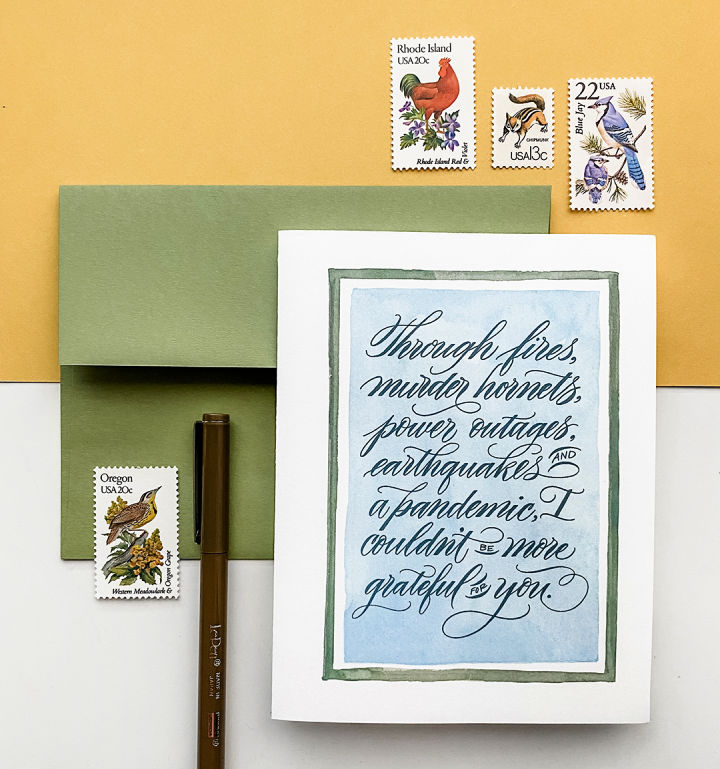 Rhode Island
USA 20c
Rhode Island Red & Violet
CHIPMUNK
USA13c
22 USA
Blue Jay
Through fires,
murder hornets,
power outages,
earthquakes AND
a pandemic, I
couldn't BE more
grateful FOR you.
Oregon
USA 20c
Western Meadowlark &
Oregon Grape
LePen
MADE IN
JAPAN